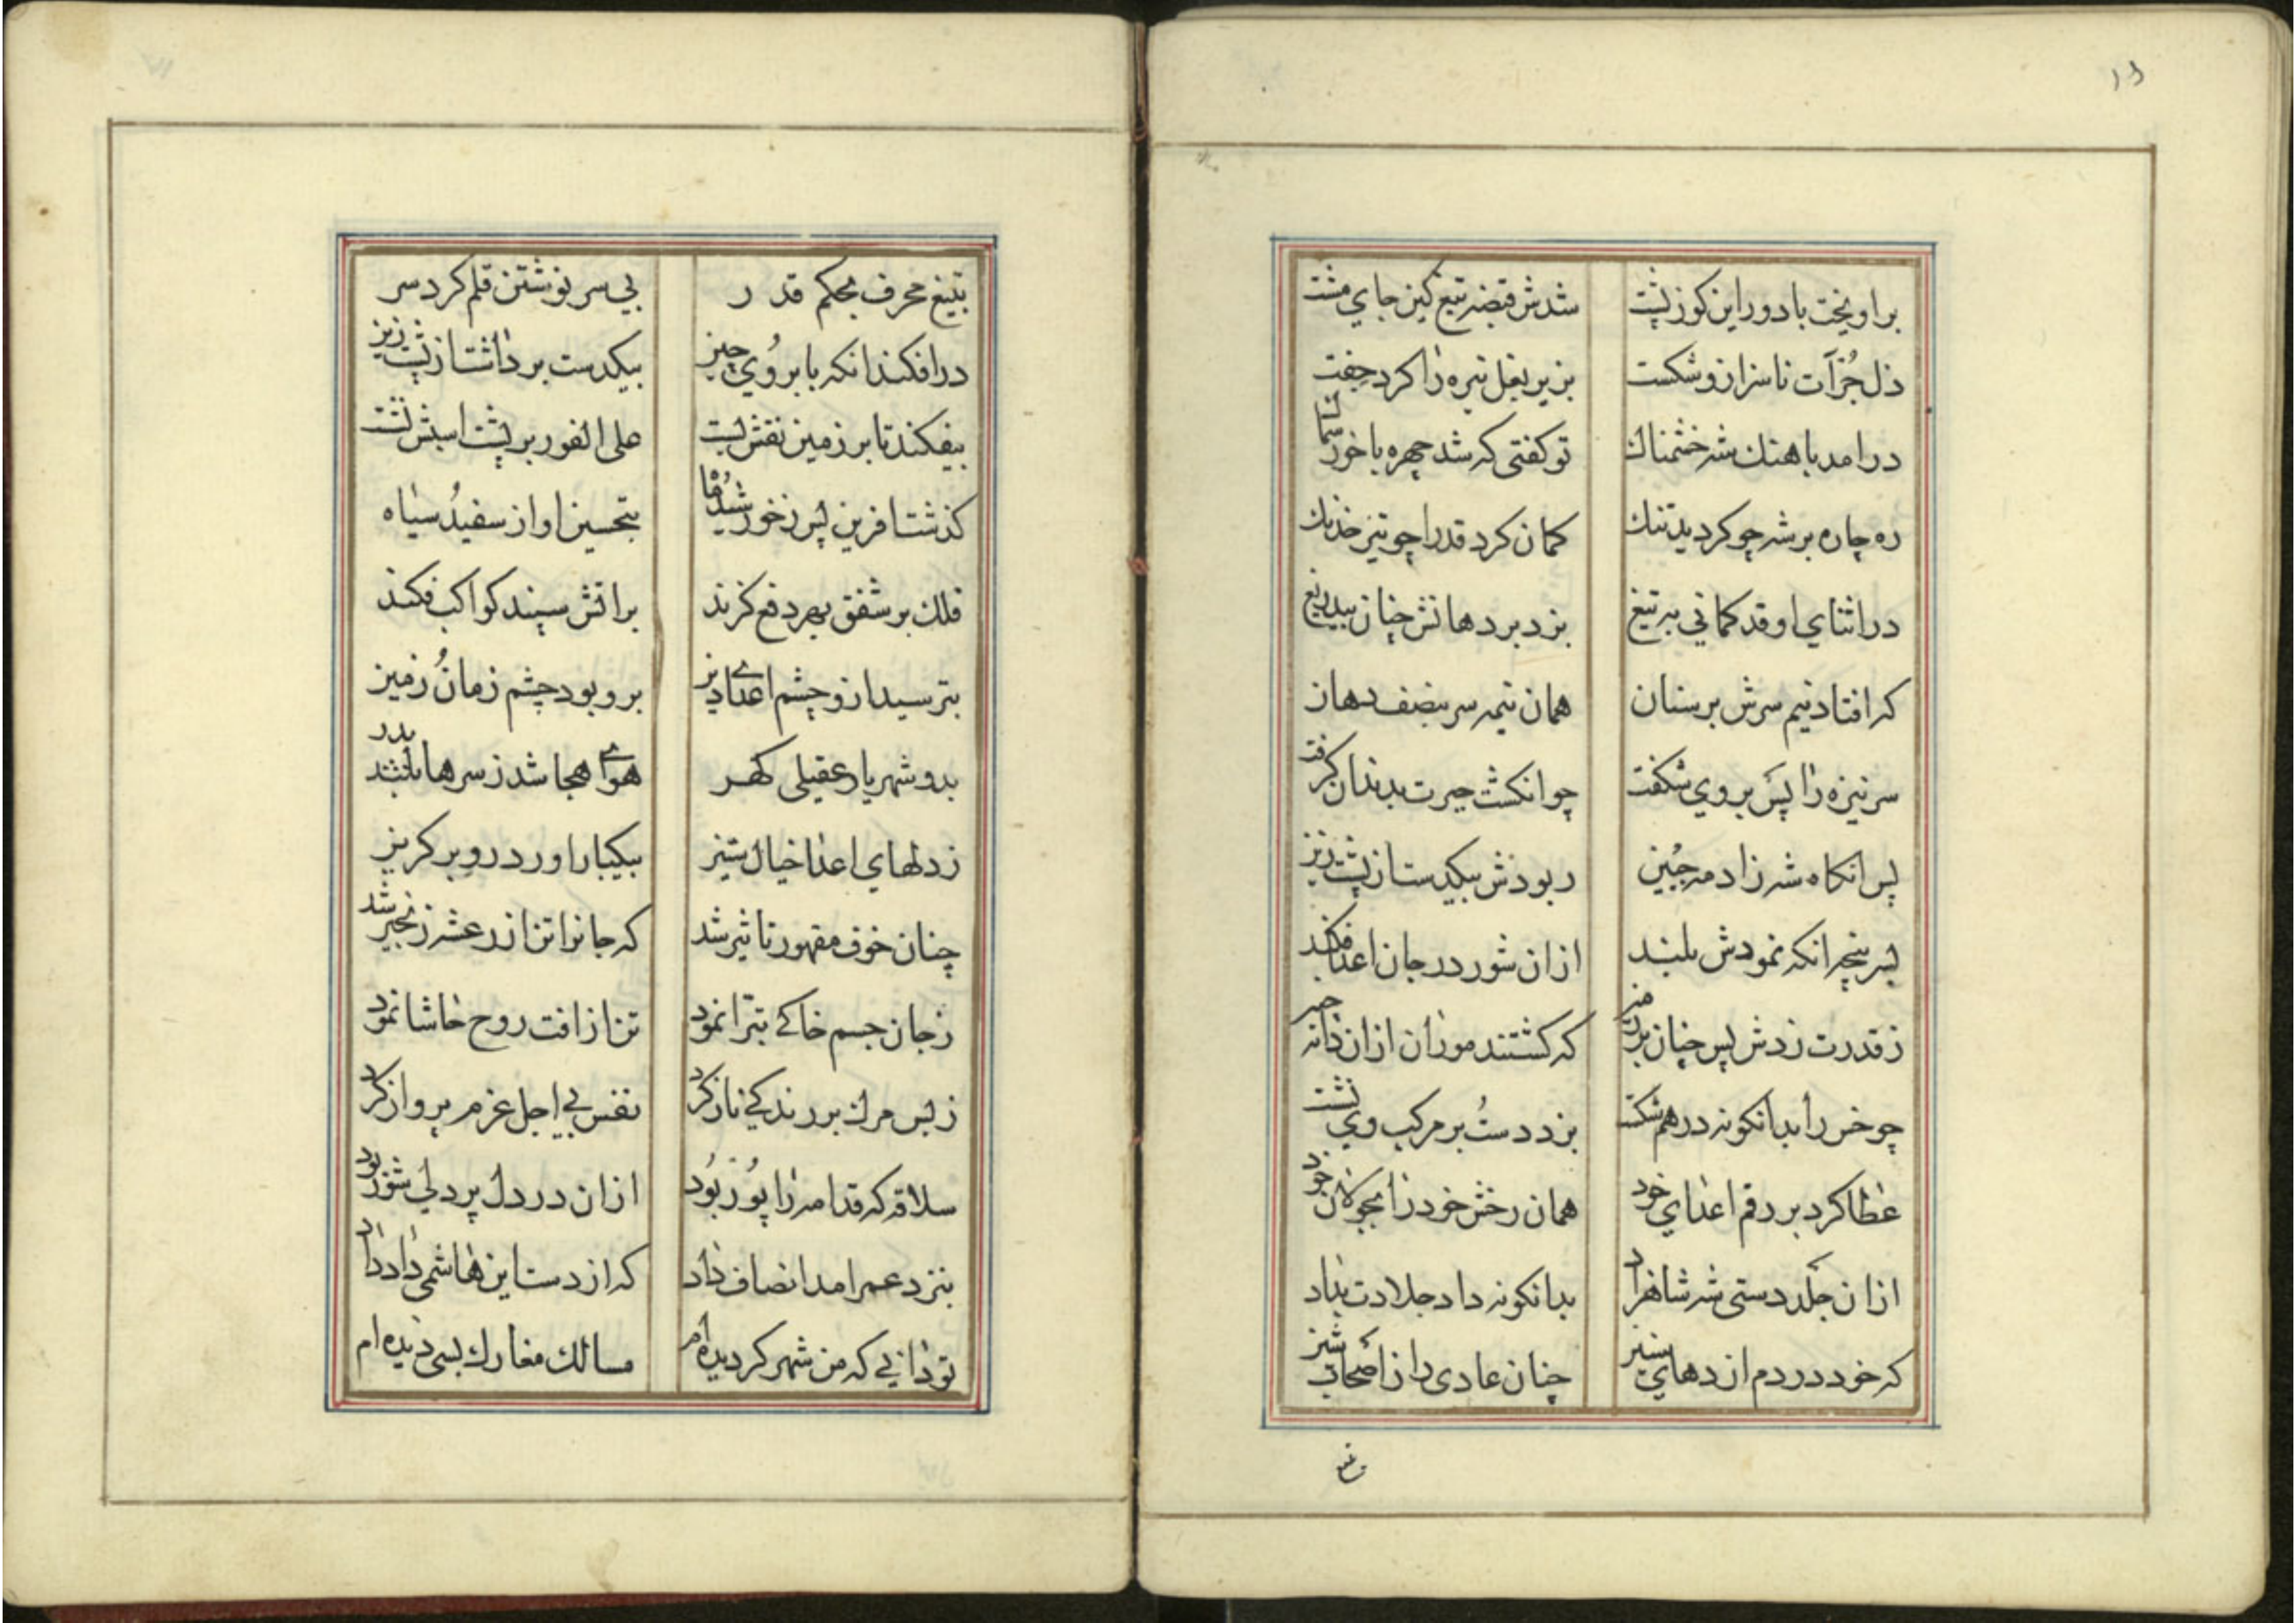 براویخت با دور این کوز پشت
شدش قبضه تیغ کین جای مشت
دل جرآت ناسزا زو شکست
بزیر بغل نیزه را کرد جفت
درامد باهنك شه خشمناك
تو کفتی که شد چهره با خور
ره چاره بر شه چو کردید تنك
کمان کرد قد را چو تیر خدنك
در اثنای او قد کمانی به تیغ
بزد بر دهانش چنان بیدریغ
که افتاد نیم سرش بر سنان
همان نیمه سر بنصف دهان
سر نیزه را پس بروی شکفت
چو انکشت حیرت بدندان کرفت
پس انکاه شهزاد مه جبین
ربودش بیکدست از پشت زین
بسر پنجه انکه نمودش بلند
ازان شور در جان اعدا فکند
ز قدرت زدش پس چنان بر زمین
که کشتند موران ازان دانه چین
چو خس را بدانکونه در هم شکست
بزد دست و بر مرکب وی نشست
عطا کرد بر رقم اعدای خود
همان رخش خود را بجولان خود
ازان جلد دستی شه شاهزاد
بدانکونه داد جلادت بداد
که خود در دم اژدهای ستیز
چنان عادی را ز اصحاب
بتیغ محرف بحکم قدر
بی سر نوشتن قلم کرد سر
در افکند انکه بابروی چین
بیکدست برداشت از پشت زین
بیفکند تا بر زمین نقش بست
علی الفور بر پشت اسبش نشست
کذشت افرین پس ز خورشید و ماه
بتحسین او از سفید و سیاه
فلك بر شفق بهر دفع کزند
براتش سپند کواکب فکند
بترسید ازو چشم اعدای دین
برو بود چشم زمان و زمین
بدو شهریار عقیلی کهر
هوای هجا شد ز سرها بدر
ز دلهای اعدا خیال ستیز
بیکبار اورد رو بر کریز
چنان خوف مقهور تاثیر شد
که جانرا تن از رعشه زنجیر شد
ز جان جسم خاکی تبرا نمود
تن از افت روح حاشا نمود
ز بس مرك بر زندکی ناز کرد
نفس بی اجل عزم پرواز کرد
سلاقه که قدامه را پور بود
ازان درد دل پر دلی شور بود
بنزد عمر امد انصاف داد
که از دست این هاشمی داد داد
تو دانی که من شهر کردیده ام
مسالك معارك بسی دیده ام